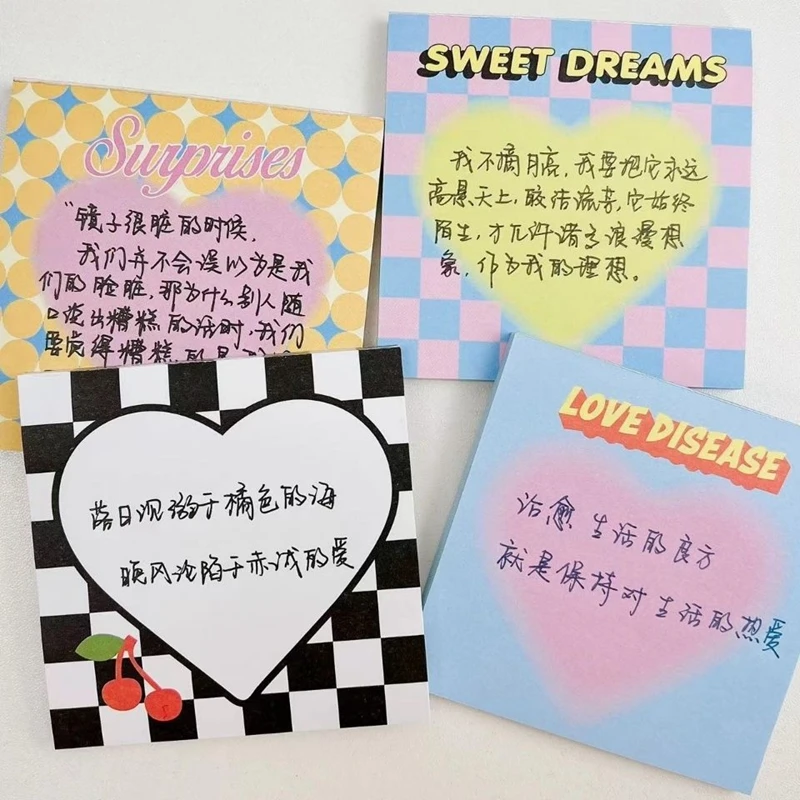 Surprises
"镜子很脏的时候,
我们并不会误以为是我
们的脸脏,那为什么别人随
口说出糟糕的话时,我们
要觉得糟糕的是
SWEET DREAMS
我不摘月亮,我要把它永远
高悬天上,皎洁流亮,它始终
陌生,才允许诸多浪漫想
象,作为我的理想。
落日沉溺于橘色的海
晚风沦陷于赤诚的爱
LOVE DISEASE
治愈生活的良方
就是保持对生活的热爱